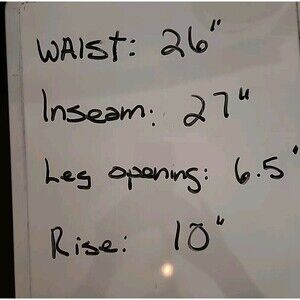 WAIST: 26"
Inseam: 27"
Leg opening: 6.5"
Rise: 10"